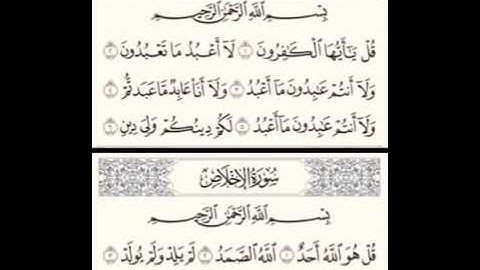 بِسْمِ ٱللَّهِ ٱلرَّحْمَٰنِ ٱلرَّحِيمِ
قُلْ يَٰٓأَيُّهَا ٱلْكَٰفِرُونَ ١ لَآ أَعْبُدُ مَا تَعْبُدُونَ ٢
وَلَآ أَنتُمْ عَٰبِدُونَ مَآ أَعْبُدُ ٣ وَلَآ أَنَا۠ عَابِدٌ مَّا عَبَدتُّمْ ٤
وَلَآ أَنتُمْ عَٰبِدُونَ مَآ أَعْبُدُ ٥ لَكُمْ دِينُكُمْ وَلِىَ دِينِ ٦
سُورَةُ الإِخْلَاصِ
بِسْمِ ٱللَّهِ ٱلرَّحْمَٰنِ ٱلرَّحِيمِ
قُلْ هُوَ ٱللَّهُ أَحَدٌ ١ ٱللَّهُ ٱلصَّمَدُ ٢ لَمْ يَلِدْ وَلَمْ يُولَدْ ٣